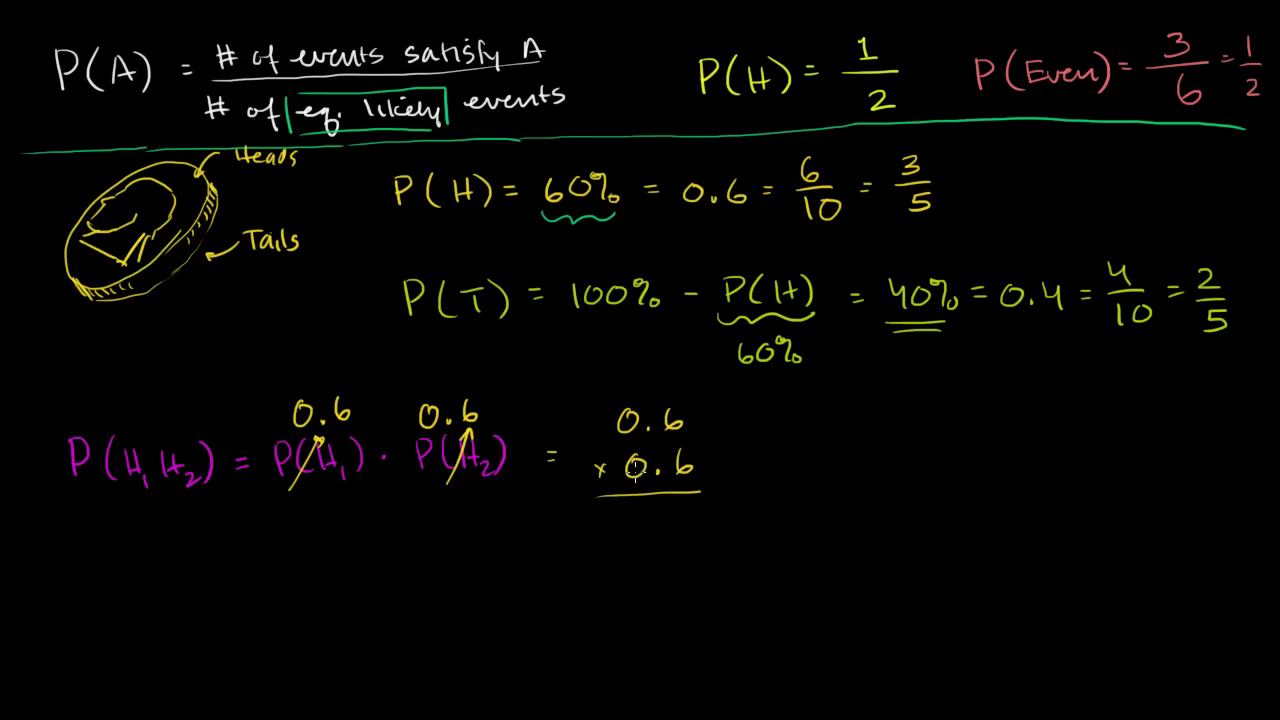 P(A) = # of events satisfy A / # of eq. likely events
P(H) = 1/2
P(Even) = 3/6 = 1/2
Heads
Tails
P(H) = 60% = 0.6 = 6/10 = 3/5
P(T) = 100% - P(H) = 40% = 0.4 = 4/10 = 2/5
60%
0.6 0.6
P(H₁ H₂) = P(H₁) · P(H₂) =
0.6
x 0.6